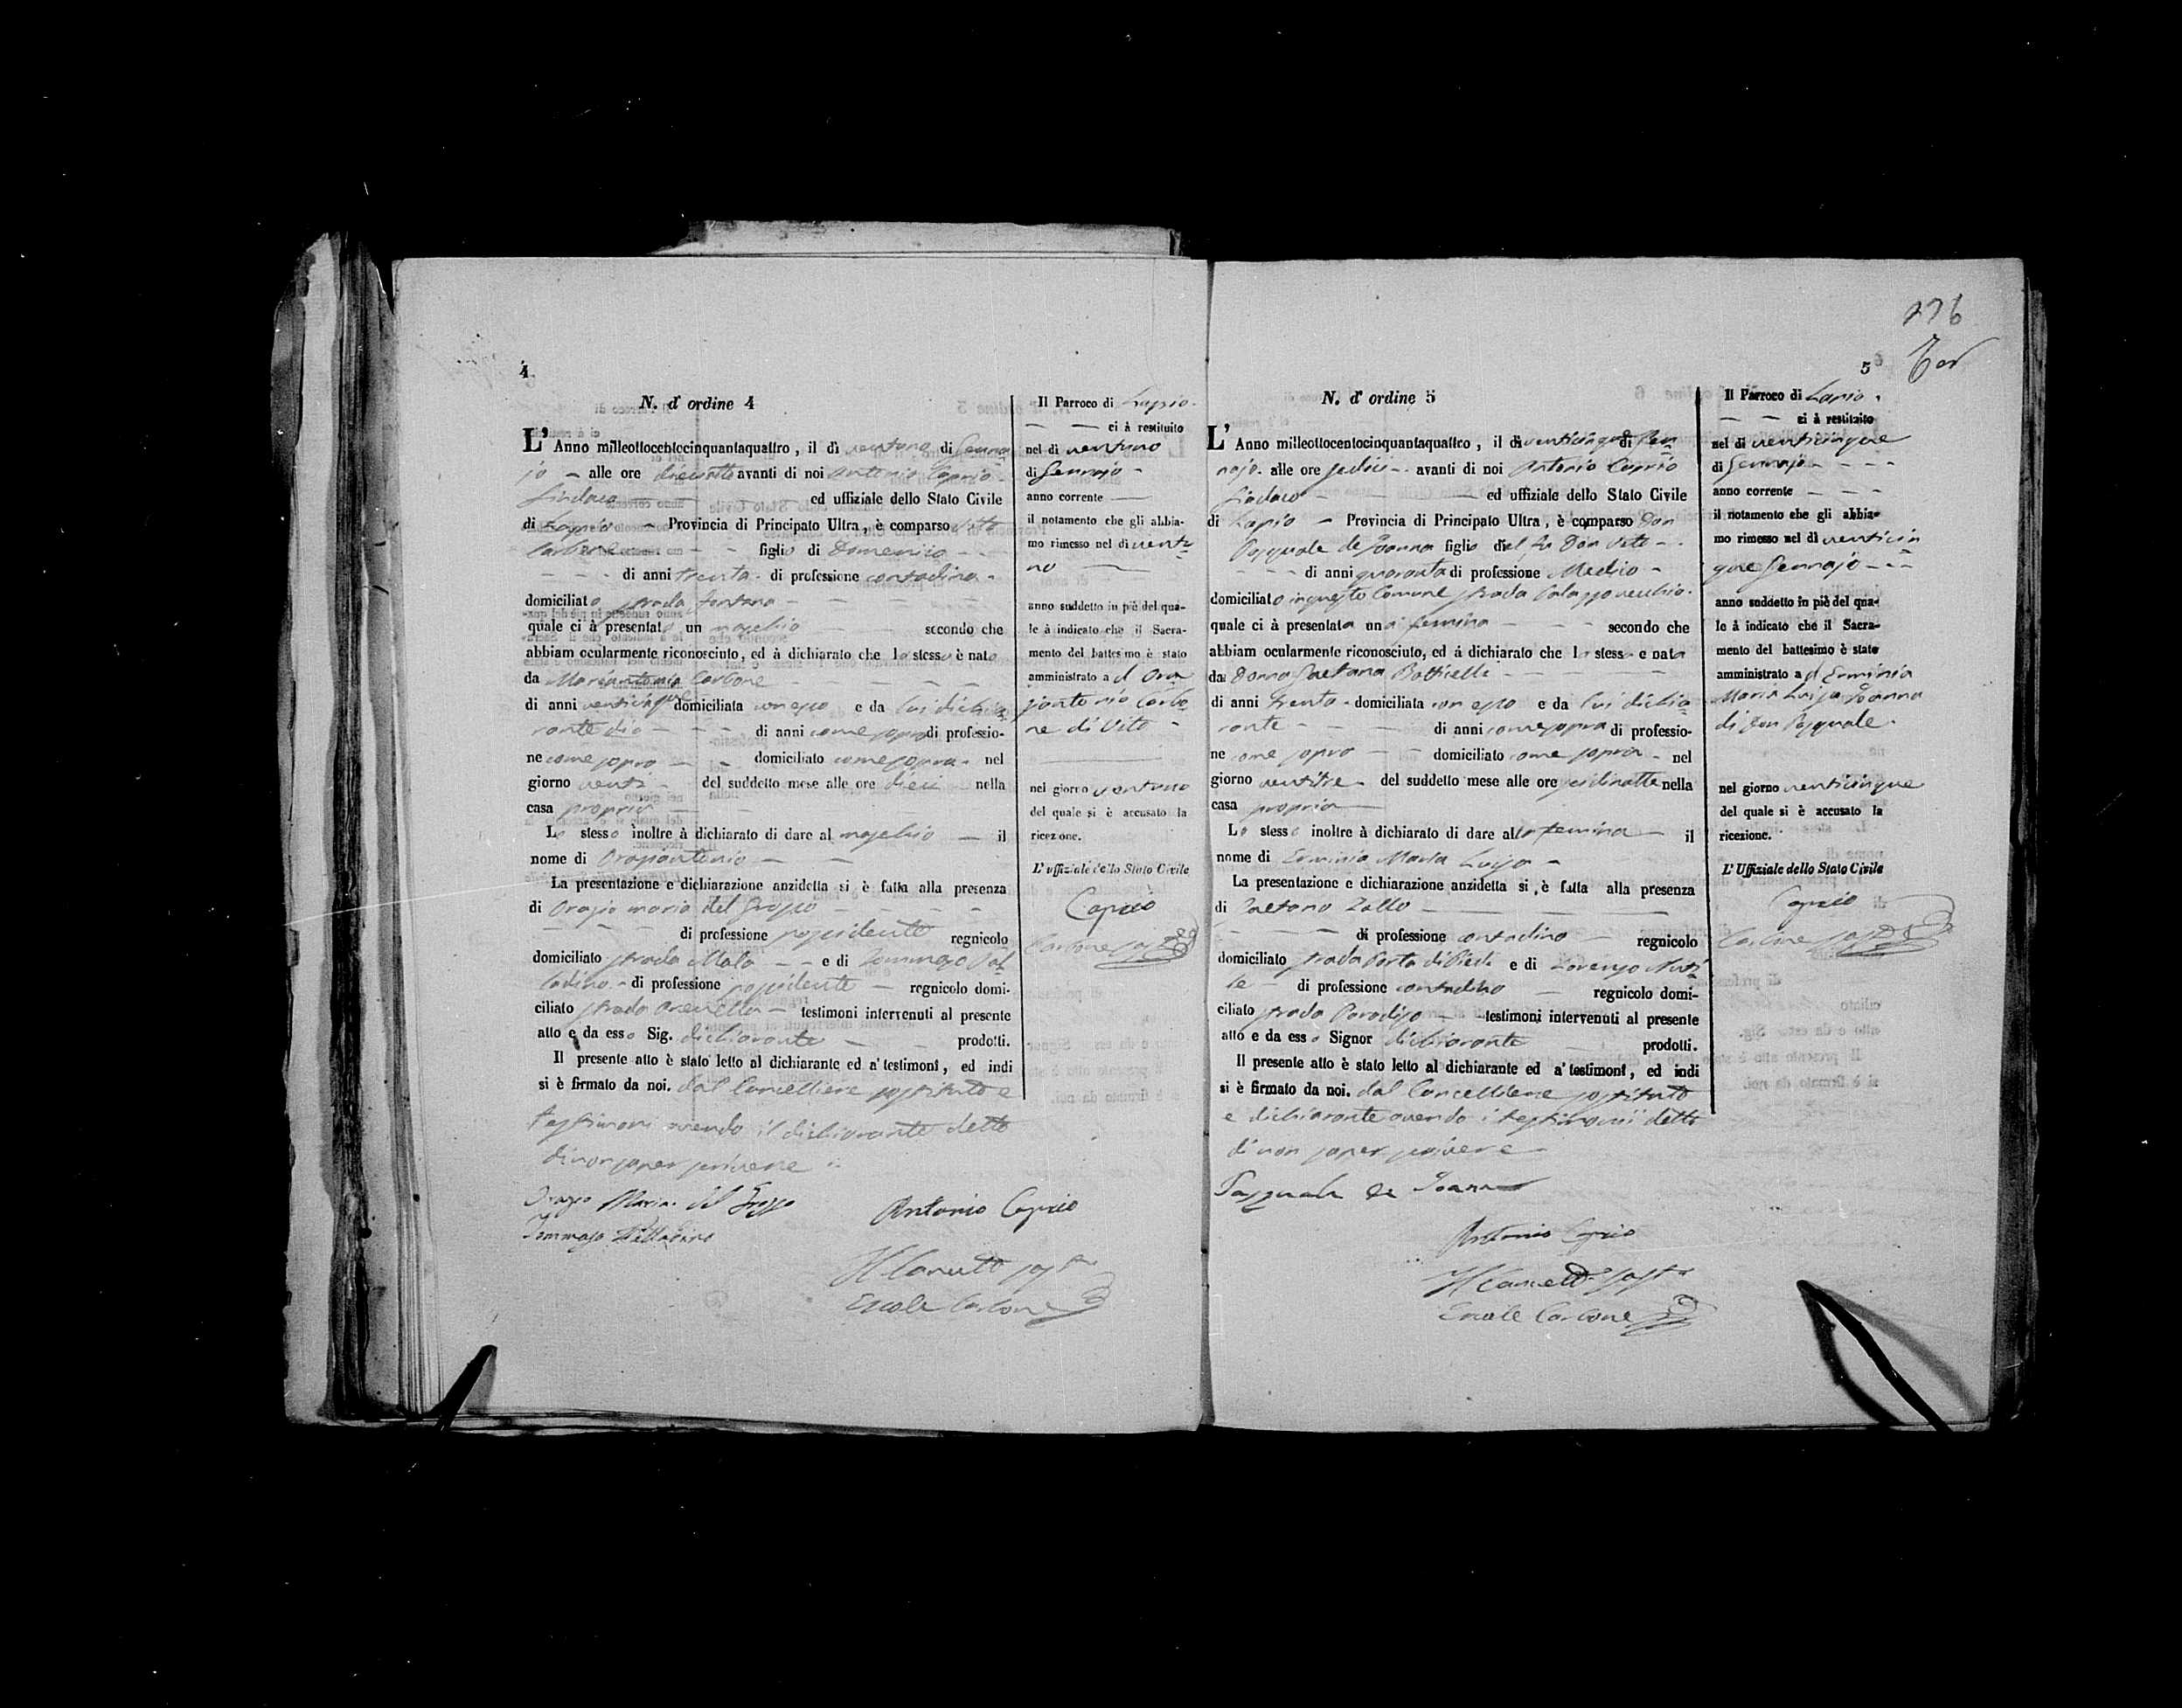 4
N. d' ordine 4
L' Anno milleottocentocinquantaquattro, il dì ventuno di Genna
jo - alle ore dieciotto avanti di noi Antonio Caprio
Sindaco ed uffiziale dello Stato Civile
di Lapio - Provincia di Principato Ultra, è comparso Vito
Carbone figlio di Domenico
di anni trenta di professione contadino
domiciliato strada fontana
quale ci à presentato un maschio secondo che
abbiam ocularmente riconosciuto, ed à dichiarato che lo stesso è nato
da Mariantonia Carbone
di anni venticinque domiciliata con esso e da lui dichia
rante di anni come sopra di professio-
ne come sopra domiciliato come sopra nel
giorno venti del suddetto mese alle ore dieci nella
casa propria
Lo stesso inoltre à dichiarato di dare al maschio il
nome di Oraziantonio
La presentazione e dichiarazione anzidetta si è fatta alla presenza
di Orazio maria del Grosso
di professione possidente regnicolo
domiciliato strada Mala e di Tommaso Pal
ladino di professione possidente regnicolo domi-
ciliato strada testimoni intervenuti al presente
atto e da esso Sig. dichiarante prodotti.
Il presente atto è stato letto al dichiarante ed a' testimoni, ed indi
si è firmato da noi. dal Cancelliere sostituto e
testimoni avendo il dichiarante detto
di non saper scrivere
Orazio Maria del Grosso
Tommaso Palladino
Antonio Caprio
Il Cancell. sost.
Ercole Carbone
Il Parroco di Lapio
ci à restituito
nel dì ventuno
di Gennajo
anno corrente
il notamento che gli abbia-
mo rimesso nel dì ventu
no
anno suddetto in piè del qua-
le à indicato che il Sacra-
mento del battesimo è stato
amministrato a d Ora
ziantonio Carbo
ne di Vito
nel giorno ventuno
del quale si è accusato la
ricezione.
L'uffiziale dello Stato Civile
Caprio
Carbone sost.
276
5
N. d' ordine 5
L' Anno milleottocentocinquantaquattro, il dì venticinque di Gen
najo alle ore sedici avanti di noi Antonio Caprio
Sindaco ed uffiziale dello Stato Civile
di Lapio - Provincia di Principato Ultra, è comparso Don
Pasquale de Joanna figlio del fu Don Vito
di anni quaranta di professione Medico
domiciliato in questo Comune strada Palazzovecchio
quale ci à presentata una femina secondo che
abbiam ocularmente riconosciuto, ed à dichiarato che la stessa è nata
da Donna Gaetana Botticelli
di anni trenta domiciliata con esso e da lui dichia
rante di anni come sopra di professio-
ne come sopra domiciliato come sopra nel
giorno ventitre del suddetto mese alle ore nella
casa propria
Lo stesso inoltre à dichiarato di dare alla femina il
nome di Erminia Maria Luisa
La presentazione e dichiarazione anzidetta si è fatta alla presenza
di Gaetano Zollo
di professione contadino regnicolo
domiciliato strada Porta di e di Lorenzo
di professione contadino regnicolo domi-
ciliato strada Paradiso testimoni intervenuti al presente
atto e da esso Signor dichiarante prodotti.
Il presente atto è stato letto al dichiarante ed a' testimoni, ed indi
si è firmato da noi. dal Cancelliere sostituto
e dichiarante avendo i testimonii detto
di non saper scrivere
Pasquale de Joanna
Antonio Caprio
Il Cancell. sost.
Ercole Carbone
Il Parroco di Lapio
ci à restituito
nel dì venticinque
di Gennajo
anno corrente
il notamento che gli abbia-
mo rimesso nel dì venticin
que Gennajo
anno suddetto in piè del qua-
le à indicato che il Sacra-
mento del battesimo è stato
amministrato a d Erminia
Maria Luisa Joanna
di Don Pasquale
nel giorno venticinque
del quale si è accusato la
ricezione.
L'Uffiziale dello Stato Civile
Caprio
Carbone sost.